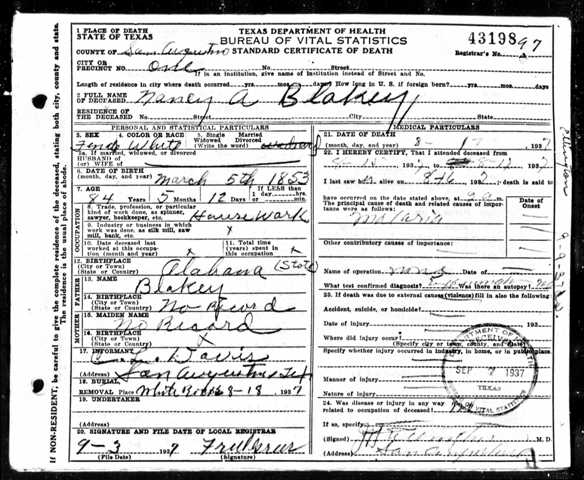 1 PLACE OF DEATH
STATE OF TEXAS
TEXAS DEPARTMENT OF HEALTH
BUREAU OF VITAL STATISTICS
STANDARD CERTIFICATE OF DEATH
43198 97
Registrar's No.
COUNTY OF San Augustine
CITY OR
PRECINCT NO. One No. Street
If in an institution, give name of institution instead of Street and No.
Length of residence in city where death occurred yrs. mos. days. How long in U. S. if foreign born? yrs. mos. days.
2 FULL NAME
OF DECEASED Nancy A Blakey
RESIDENCE OF
THE DECEASED No. Street City State
PERSONAL AND STATISTICAL PARTICULARS
MEDICAL PARTICULARS
3. SEX
4. COLOR OR RACE
5. Single
Married
Widowed
Divorced
(Write the word)
White
5a. If married, widowed, or divorced
HUSBAND OF
or WIFE OF
6. DATE OF BIRTH
(month, day, and year) March 5th 1853
7. AGE
84 Years 5 Months 12 Days
If LESS than
OCCUPATION
8. Trade, profession, or particular
kind of work done, as spinner,
sawyer, bookkeeper, etc. House Work
9. Industry or business in which
work was done, as silk mill, saw
mill, bank, etc.
10. Date deceased last
worked at this occupation
(month and year) x
11. Total time (years)
spent in this
occupation x
12. BIRTHPLACE
(City or Town)
(State or Country) Alabama (State)
FATHER
13. NAME Blakey
14. BIRTHPLACE
(City or Town)
(State or Country) No Record
MOTHER
15. MAIDEN NAME No Record
16. BIRTHPLACE
(City or Town)
(State or Country) x
17. INFORMANT Davis
(Address) San Augustine Tex
18. BURIAL
REMOVAL Place White Rock 8-18 1937
19. UNDERTAKER
(Address)
20. SIGNATURE AND FILE DATE OF LOCAL REGISTRAR
9-3 1937
(File Date) (Signature)
21. DATE OF DEATH
(month, day, and year) 8- 1937
22. I HEREBY CERTIFY, That I attended deceased
from
I last saw h alive on 8-16 death is said to
have occurred on the date stated above, at m.
The principal cause of death and related causes of importance were as follows:
Date of
Onset
Malaria
Other contributory causes of importance:
Name of operation none
What test confirmed diagnosis? Was there an autopsy?
23. If death was due to external causes (violence) fill in also the following:
Accident, suicide, or homicide?
Date of injury 193
Where did injury occur?
(Specify city or town, county, and State)
Specify whether injury occurred in industry, in home, or in public place.
Manner of injury
Nature of injury
24. Was disease or injury in any way
related to occupation of deceased?
If so, specify
(Signed) M. D.
(Address) San Augustine
RECEIVED
SEP 7 1937
TEXAS
VITAL STATISTICS
If NON-RESIDENT, be careful to give the complete residence of the deceased, stating both city, county and state.
The residence is the usual place of abode.